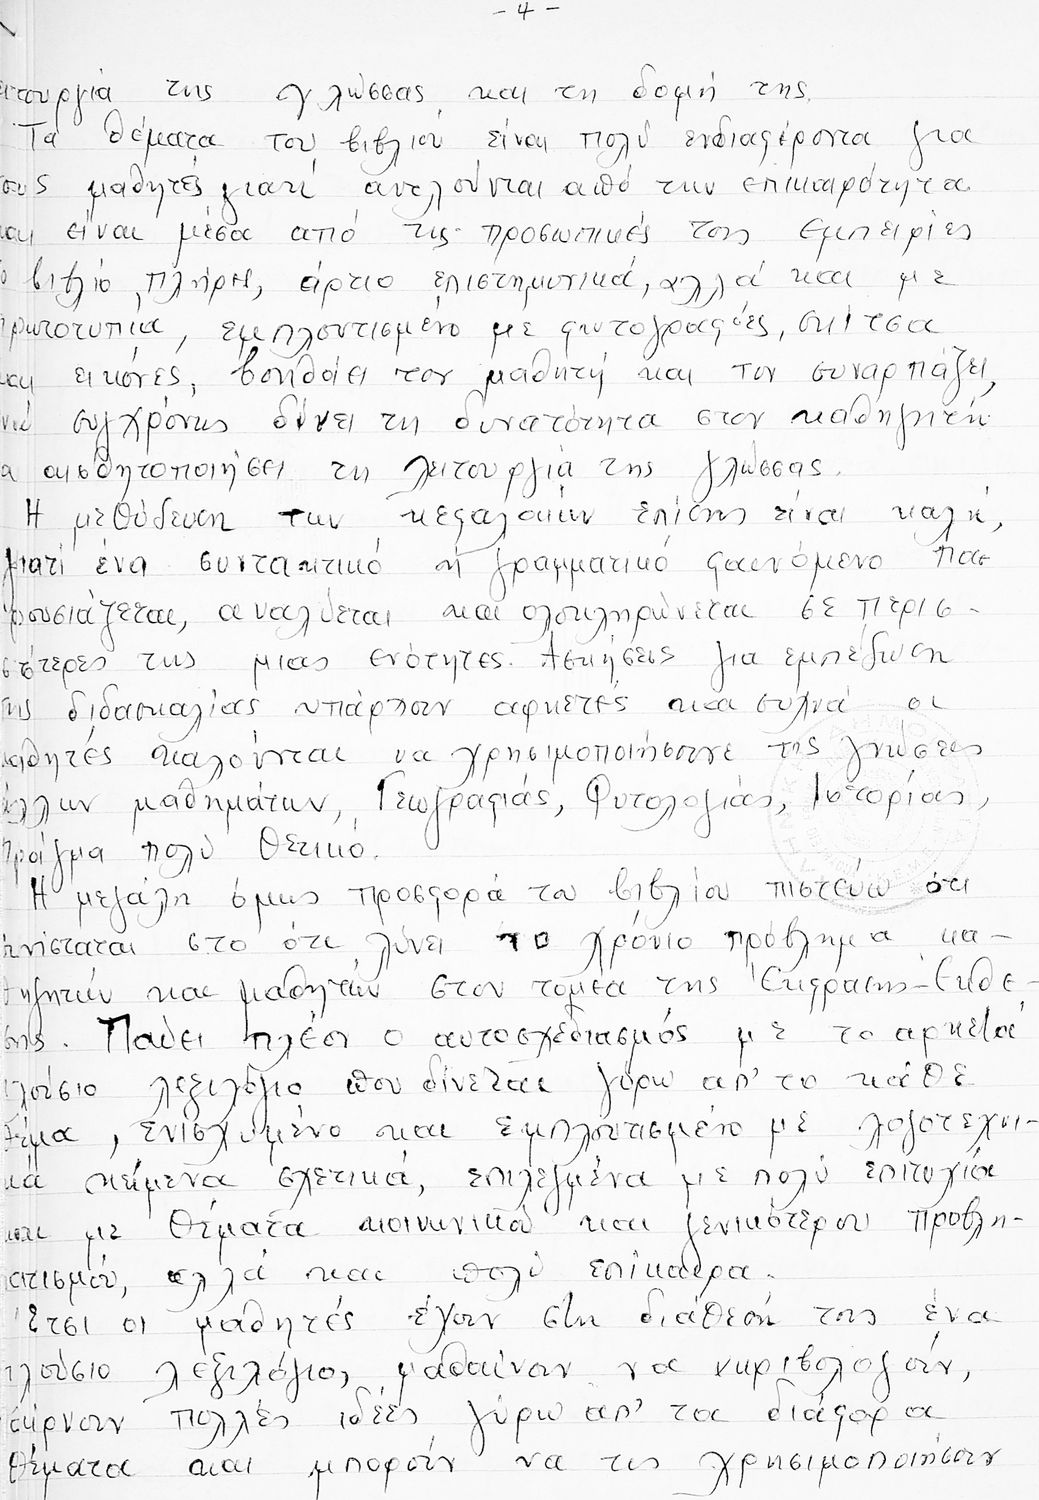 - 4 -
ιτουργία της γλώσσας και τη δομή της.
Τα θέματα του βιβλίου είναι πολύ ενδιαφέροντα για
τους μαθητές γιατί αντλούνται από την επικαιρότητα
και είναι μέσα από τις προσωπικές τους εμπειρίες
βιβλίο, πλήρες, άρτιο επιστημονικά, αλλά και με
πρωτοτυπία, εμπλουτισμένο με φωτογραφίες, σκίτσα
και εικόνες, βοηθάει τον μαθητή και τον συναρπάζει,
ενώ συγχρόνως δίνει τη δυνατότητα στον καθηγητή
να αισθητοποιήσει τη λειτουργία της γλώσσας.
Η μεθόδευση των κεφαλαίων επίσης είναι καλή,
γιατί ένα συντακτικό ή γραμματικό φαινόμενο πα-
ρουσιάζεται, αναλύεται και ολοκληρώνεται σε περισ-
σότερες της μιας ενότητες. Ασκήσεις για εμπέδωση
της διδασκαλίας υπάρχουν αρκετές και συχνά οι
μαθητές καλούνται να χρησιμοποιήσουνε τις γνώσεις
άλλων μαθημάτων, Γεωγραφίας, Φυτολογίας, Ιστορίας,
πράγμα πολύ θετικό.
Η μεγάλη όμως προσφορά του βιβλίου πιστεύω ότι
συνίσταται στο ότι λύνει το χρόνιο πρόβλημα κα-
θηγητών και μαθητών στον τομέα της Έκφρασης-Έκθε-
σης. Παύει πλέον ο αυτοσχεδιασμός με το αρκετά
πλούσιο λεξιλόγιο που δίνεται γύρω απ' το κάθε
θέμα, ενισχυμένο και εμπλουτισμένο με λογοτεχνι-
κά κείμενα σχετικά, επιλεγμένα με πολύ επιτυχία
και με θέματα κοινωνικού και γενικότερου προβλη-
ματισμού, αλλά και πολύ επίκαιρα.
Έτσι οι μαθητές έχουν στη διάθεσή τους ένα
πλούσιο λεξιλόγιο, μαθαίνουν να κυριολογούν,
παίρνουν πολλές ιδέες γύρω απ' τα διάφορα
θέματα και μπορούν να τις χρησιμοποιήσουν